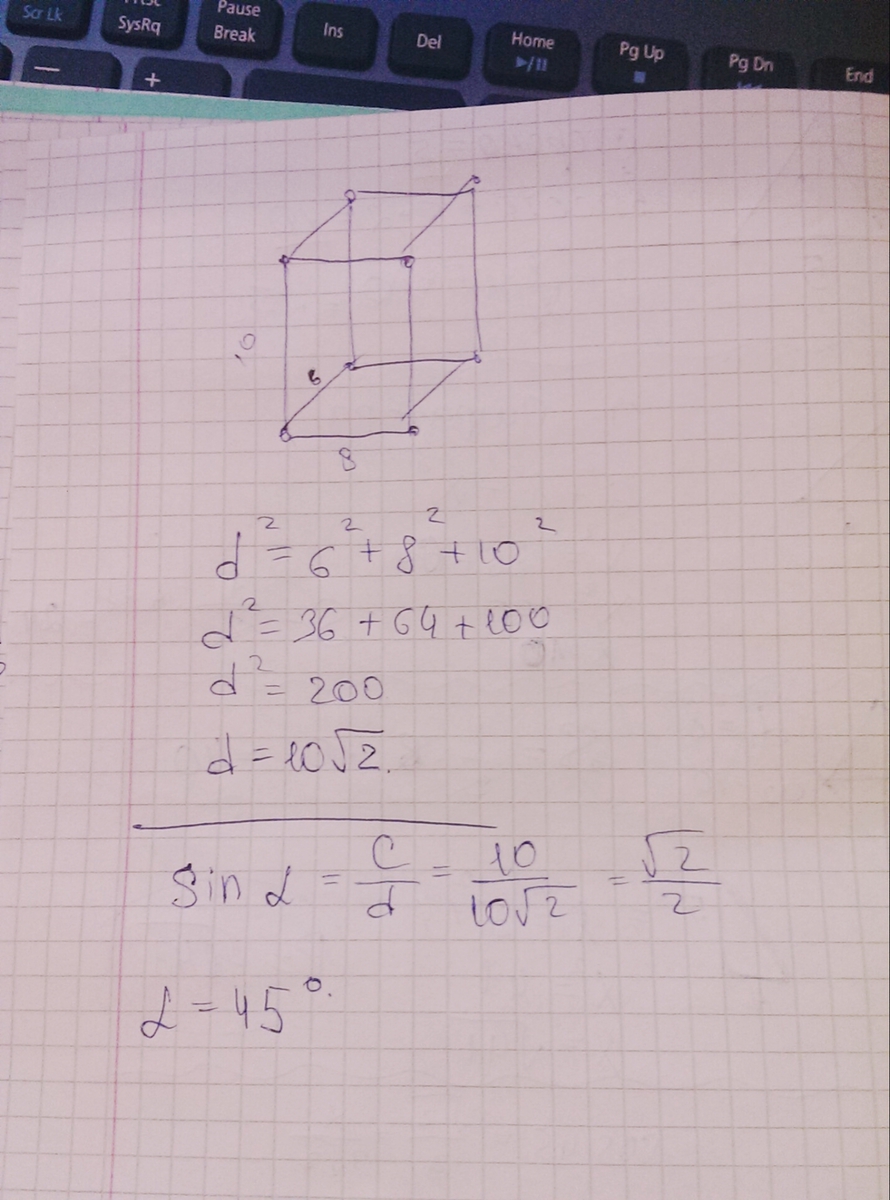 Scr Lk
SysRq
Pause
Break
Ins
Del
Home
Pg Up
Pg Dn
End
—
+
10
6
8
d² = 6² + 8² + 10²
d² = 36 + 64 + 100
d² = 200
d = 10√2.
Sin α = C/d = 10/10√2 = √2/2
α = 45°.